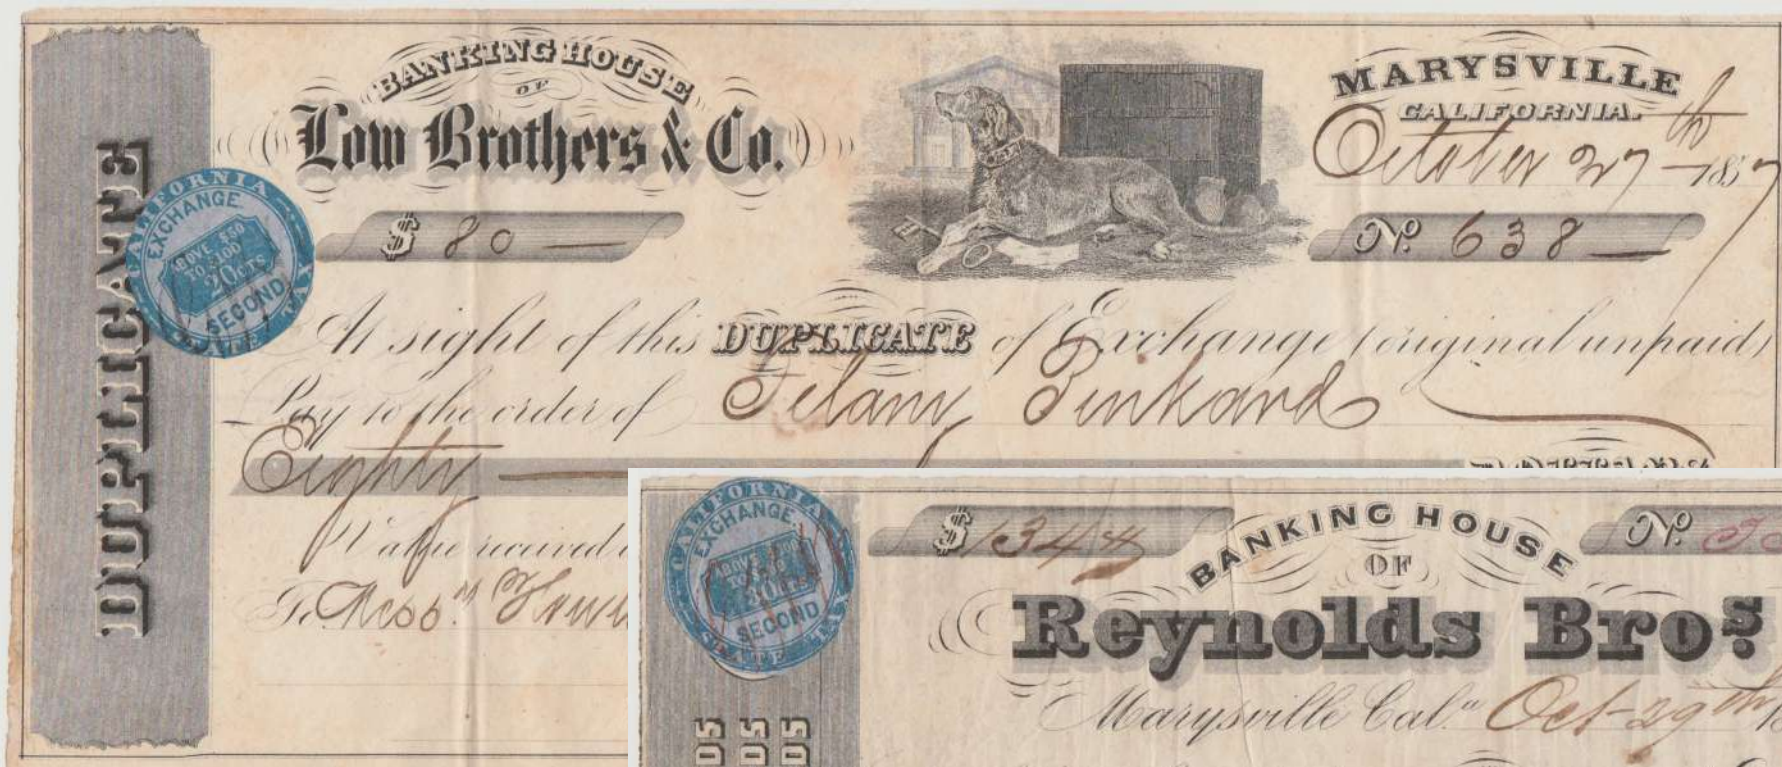 DUPLICATE
BANKING HOUSE
OF
Low Brothers & Co.
MARYSVILLE
CALIFORNIA.
October 27th 1857
$ 80
No. 638
CALIFORNIA
EXCHANGE
ABOVE $50
TO $100
20CTS
SECOND
STATE TAX
At sight of this DUPLICATE of Exchange (original unpaid)
Pay to the order of Pinkard
Eighty DOLLARS
Value received
To Mess
CALIFORNIA
EXCHANGE
ABOVE $100
30CTS
SECOND
STATE TAX
$ 134
No.
BANKING HOUSE
OF
Reynolds Bros.
Marysville Cal. Oct 29th 18
DS
DS
DS